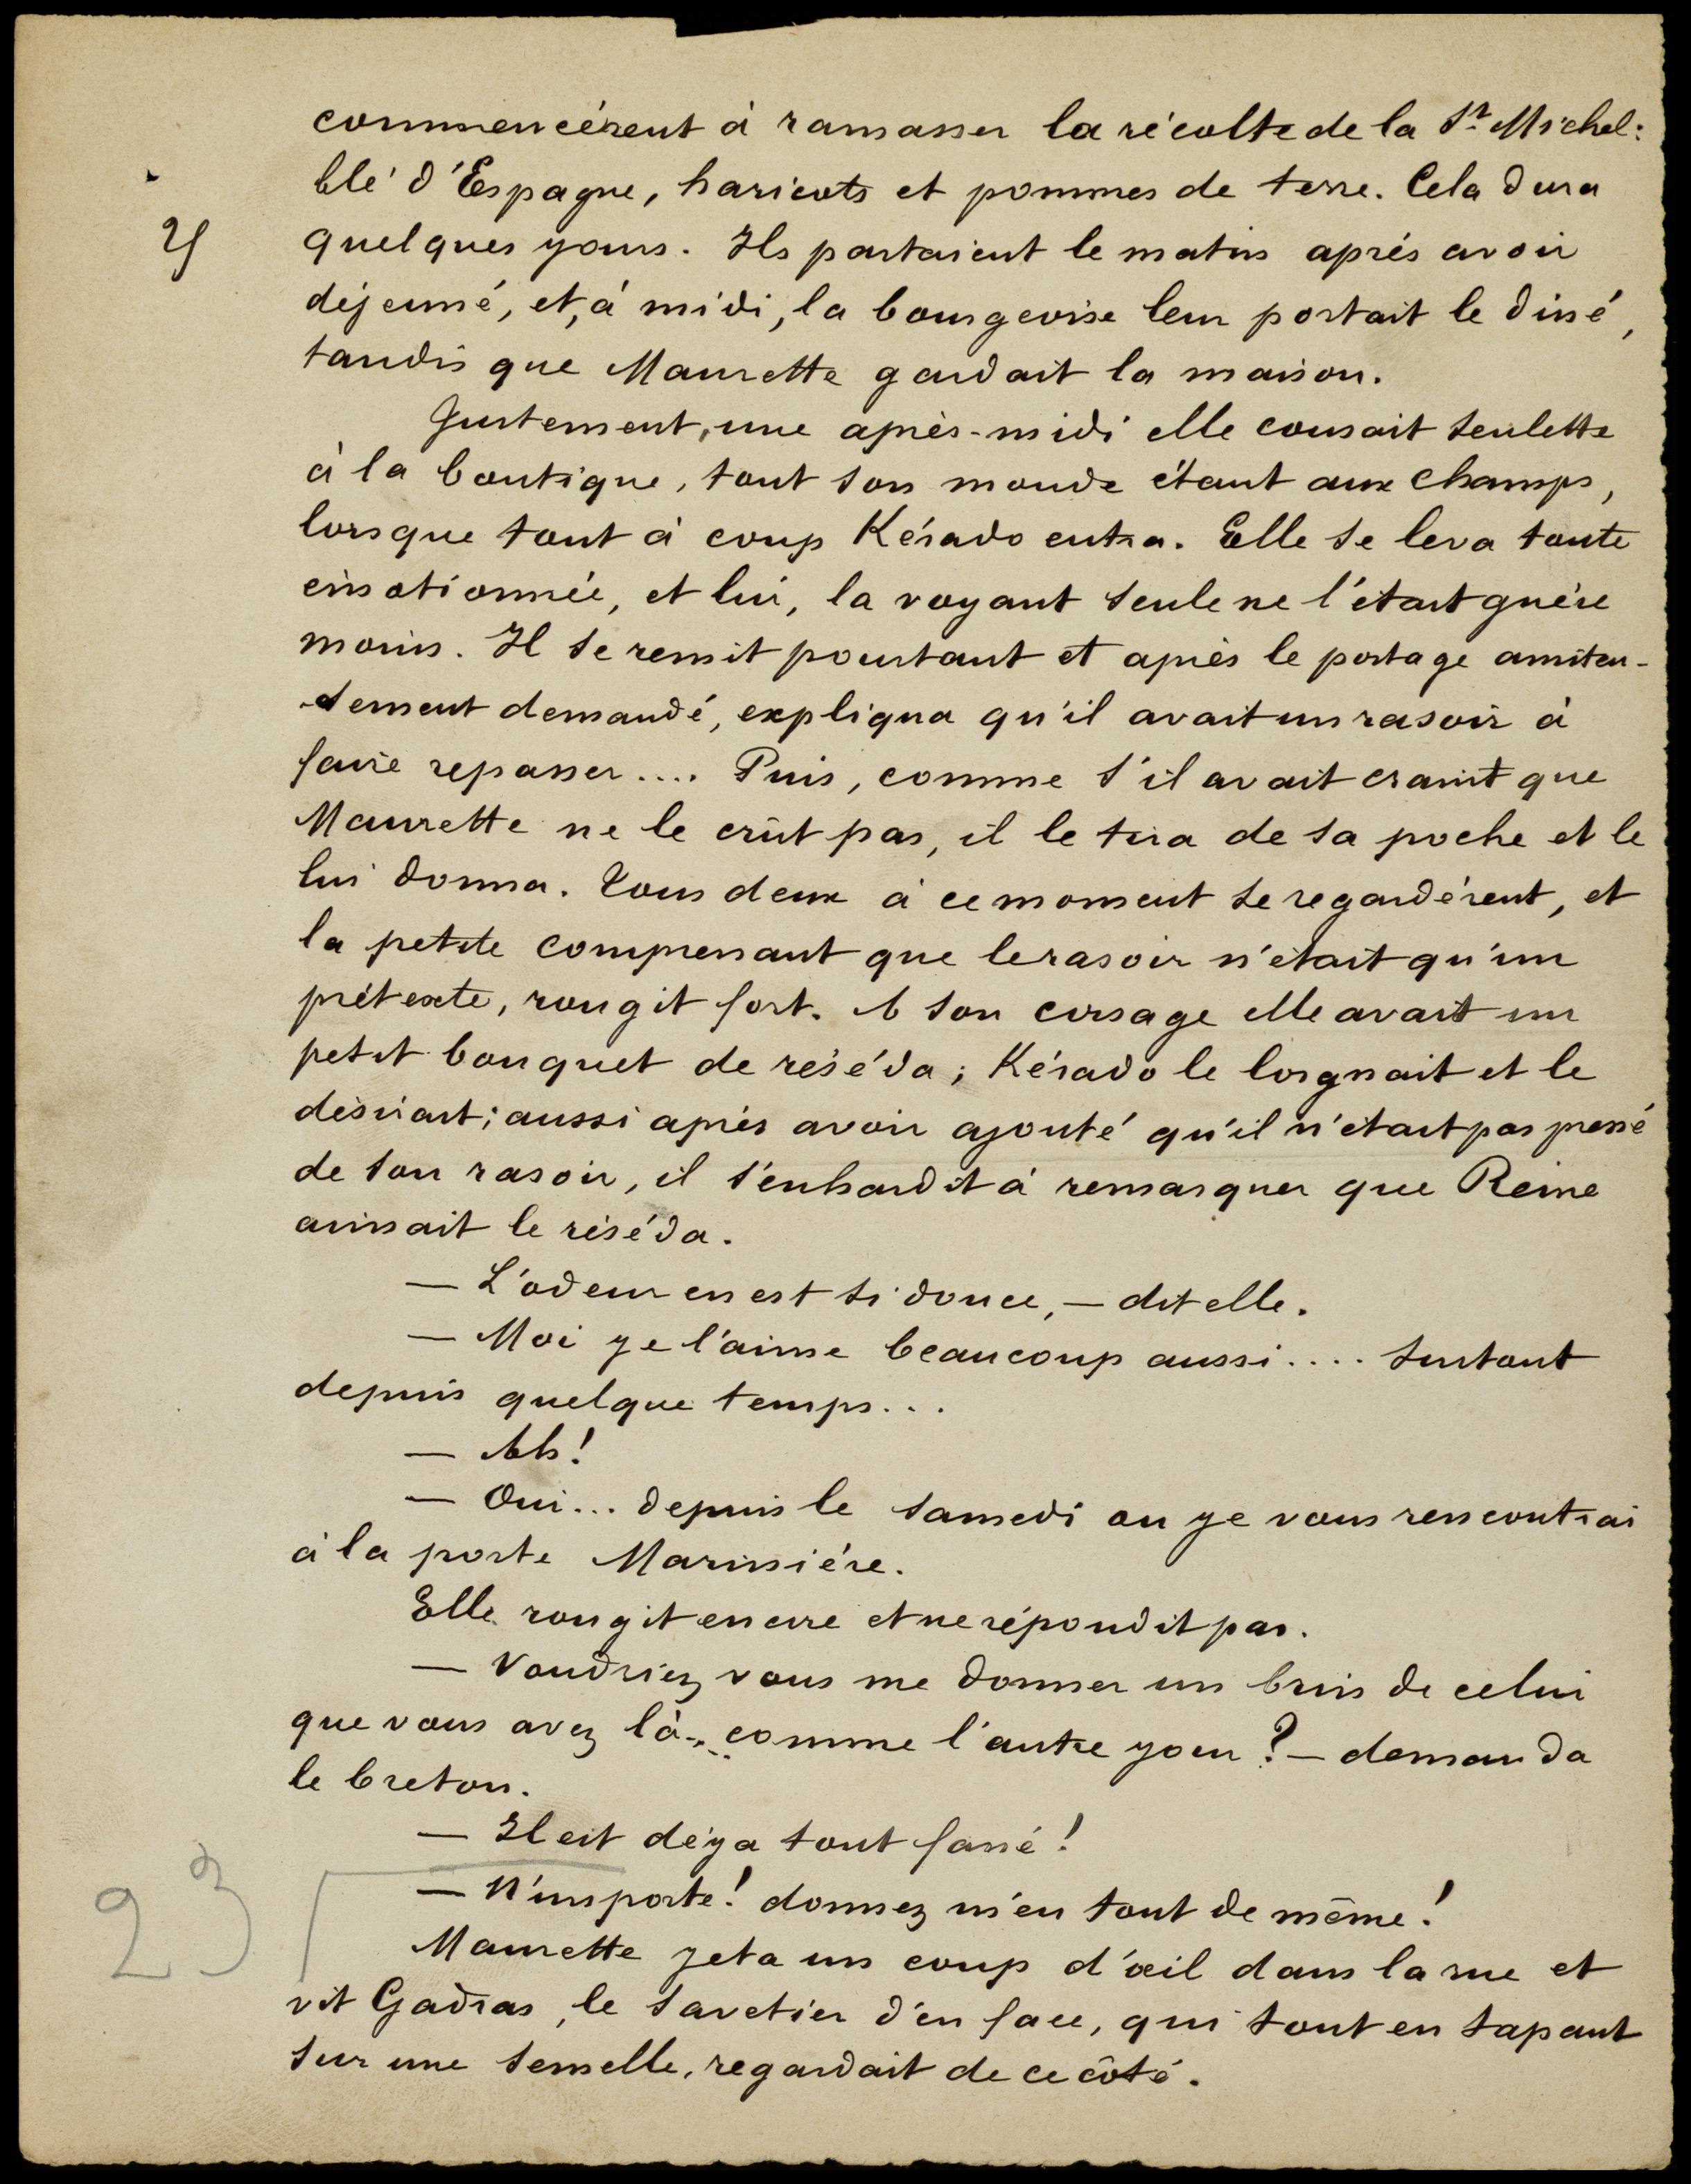 commencèrent à ramasser la récolte de la St Michel:
blé d'Espagne, haricots et pommes de terre. Cela dura
quelques jours. Ils partaient le matin après avoir
déjeuné, et, à midi, la bourgeoise leur portait le diné,
tandis que Maurette gardait la maison.
Justement, une après-midi elle cousait seulette
à la boutique, tout son monde étant aux champs,
lorsque tout à coup Kérado entra. Elle se leva toute
émotionnée, et lui, la voyant seule ne l'était guère
moins. Il se remit pourtant et après le portage amiteu-
-sement demandé, expliqua qu'il avait un rasoir à
faire repasser.... Puis, comme s'il avait craint que
Maurette ne le crût pas, il le tira de sa poche et le
lui donna. Tous deux à ce moment se regardèrent, et
la petite comprenant que le rasoir n'était qu'un
prétexte, rougit fort. A son corsage elle avait un
petit bouquet de réséda; Kérado le lorgnait et le
désirait; aussi après avoir ajouté qu'il n'était pas pressé
de son rasoir, il s'enhardit à remarquer que Reine
aimait le réséda.
— L'odeur en est si douce, — dit elle.
— Moi je l'aime beaucoup aussi.... surtout
depuis quelque temps...
— Ah!
— Oui... depuis le samedi ou je vous rencontrai
à la porte Marinière.
Elle rougit encore et ne répondit pas.
— Voudriez vous me donner un brin de celui
que vous avez là... comme l'autre jour? — demanda
le breton.
— Il est déja tout fané!
— N'importe! donnez m'en tout de même!
23
Maurette jeta un coup d'œil dans la rue et
vit Gadras, le savetier d'en face, qui tout en tapant
sur une semelle, regardait de ce côté.